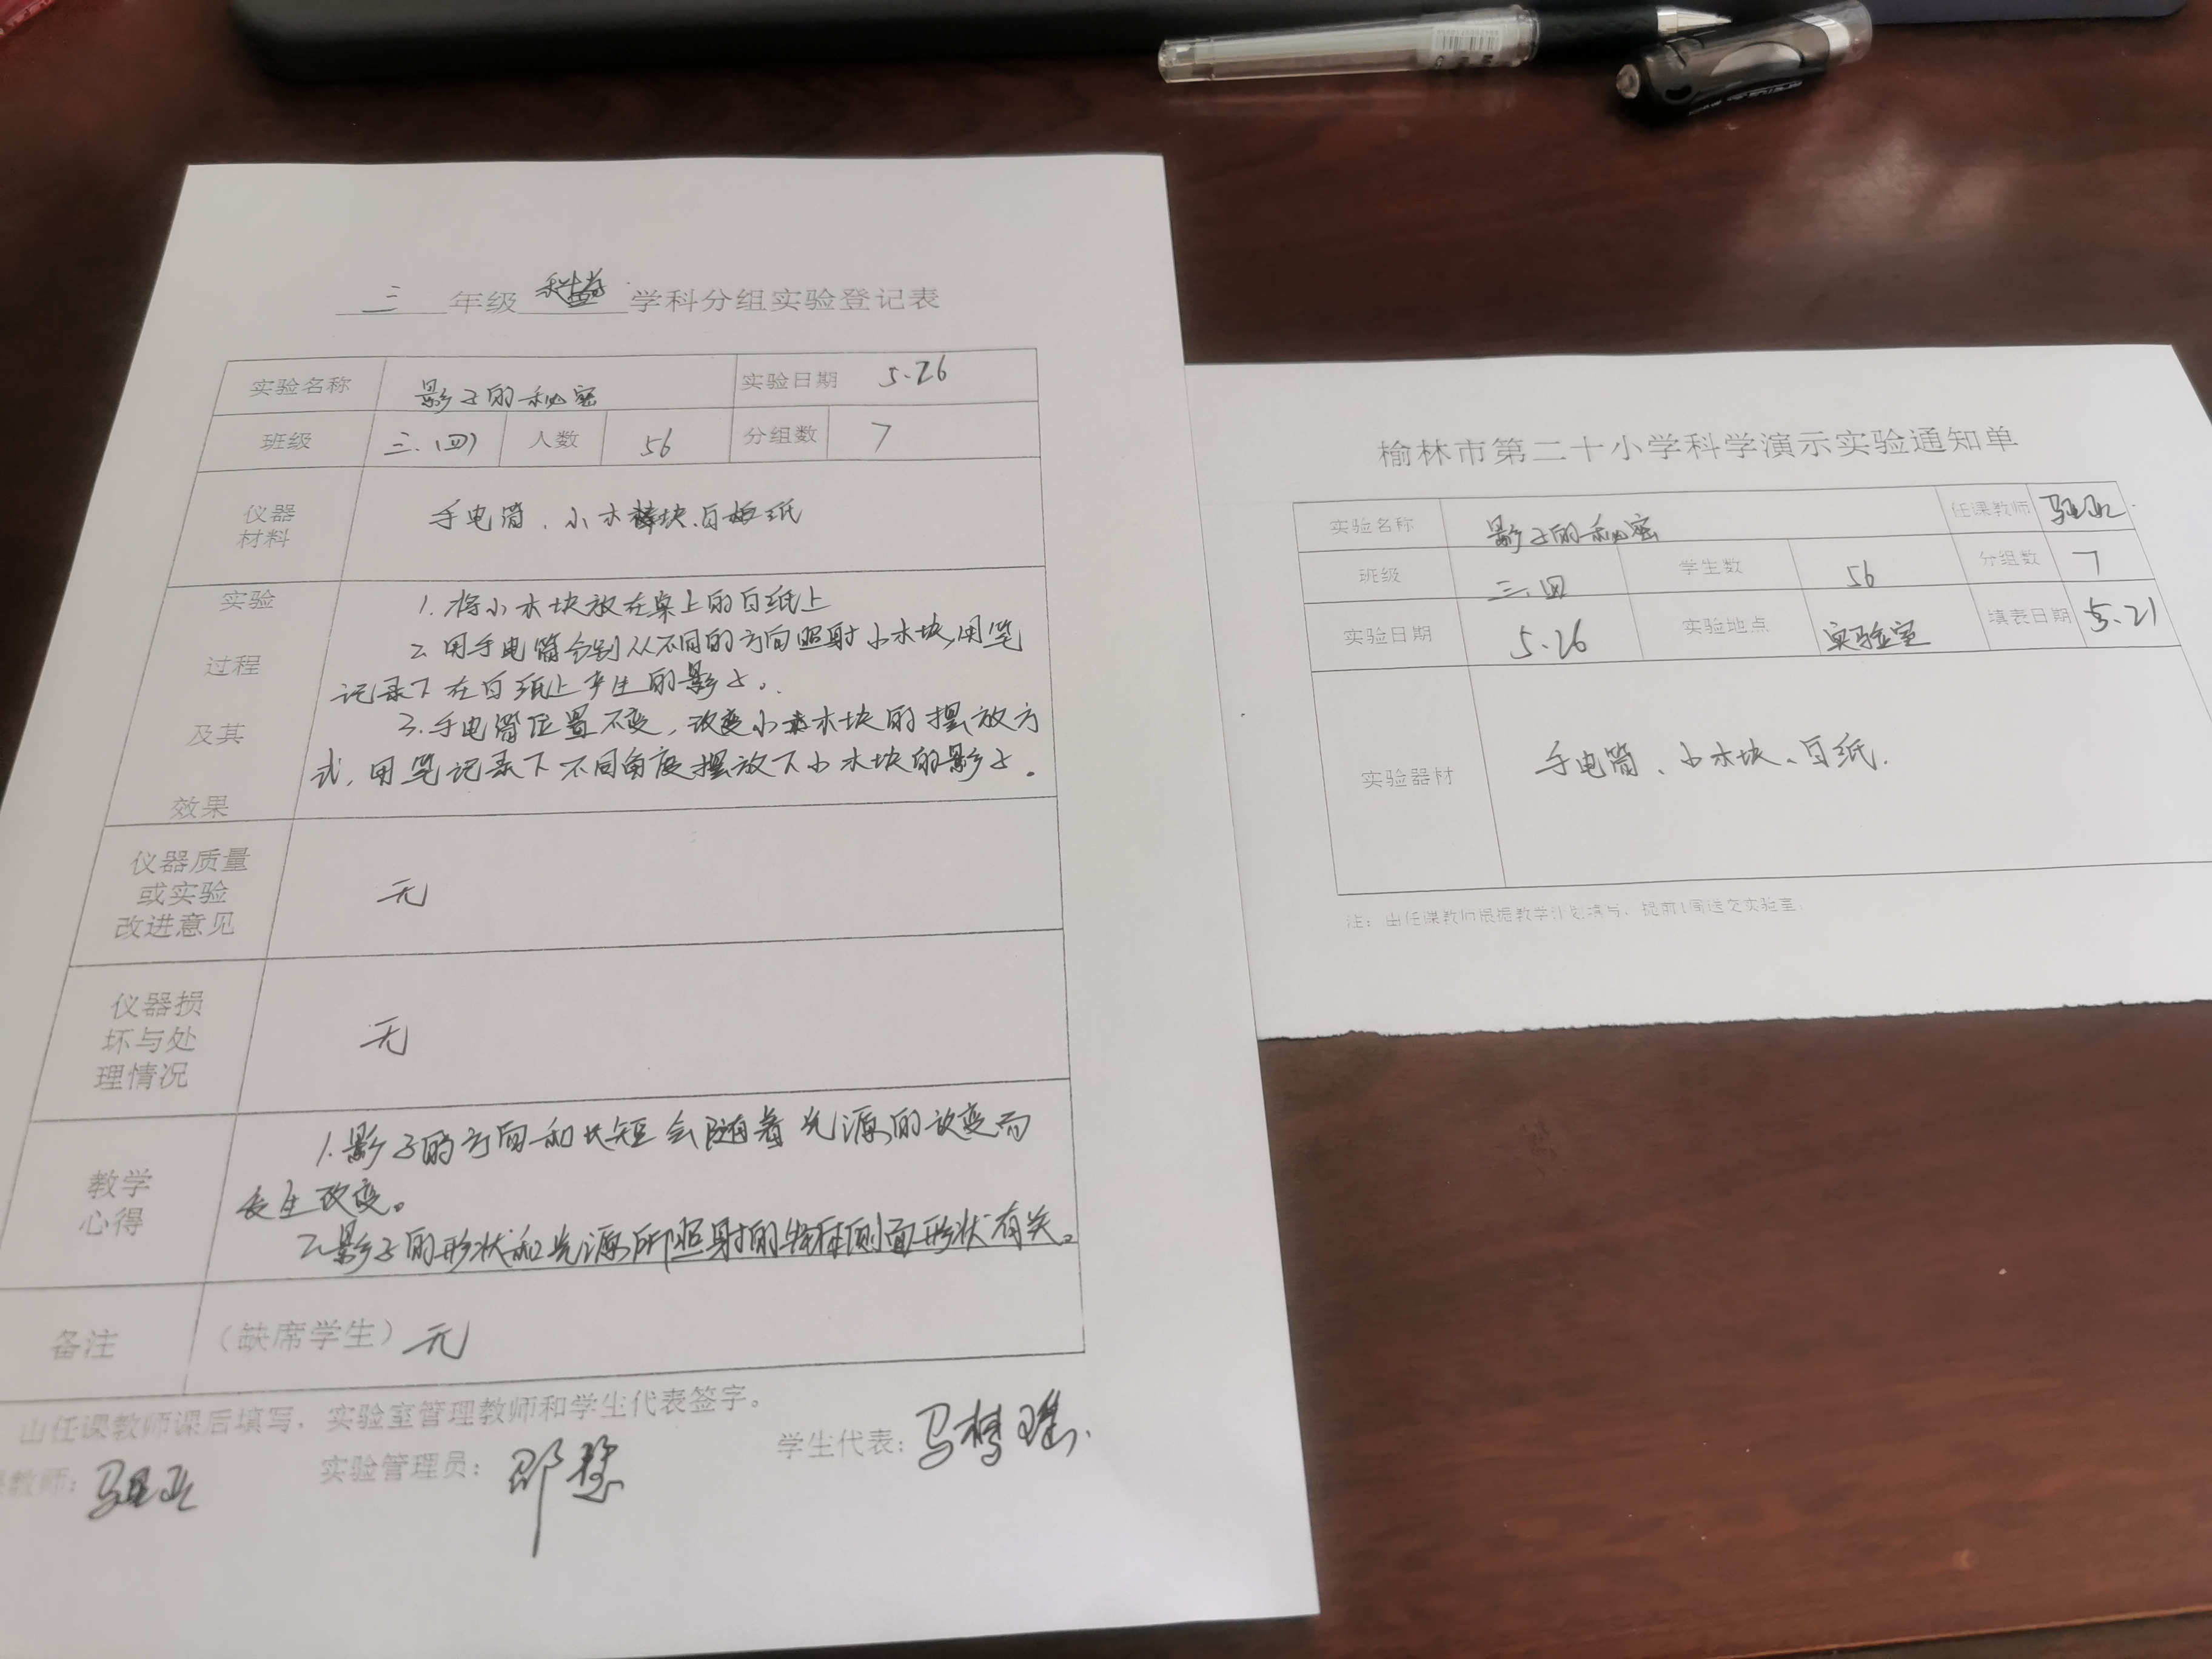 三 年级 科学 学科分组实验登记表
实验名称 影子的秘密 实验日期 5.26
班级 三.(四) 人数 56 分组数 7
仪器
材料
手电筒、小木块、白纸
实验
过程
及其
效果
1.将小木块放在桌上的白纸上
2.用手电筒分别从不同的方向照射小木块,用笔
记录下在白纸上产生的影子。
3.手电筒位置不变,改变小木块的摆放方
式,用笔记录下不同角度摆放下小木块的影子。
仪器质量
或实验
改进意见
无
仪器损
坏与处
理情况
无
教学
心得
1.影子的方向和长短会随着光源的改变而
发生改变。
2.影子的形状和光源所照射的物体侧面形状有关。
备注 (缺席学生) 无
由任课教师课后填写,实验室管理教师和学生代表签字。
教师: 实验管理员: 邵慧 学生代表: 马梦瑶.
榆林市第二十小学科学演示实验通知单
实验名称 影子的秘密 任课教师
班级 三.四 学生数 56 分组数 7
实验日期 5.26 实验地点 实验室 填表日期 5.21
实验器材 手电筒、小木块、白纸.
注:由任课教师根据教学计划填写,提前1周送交实验室。